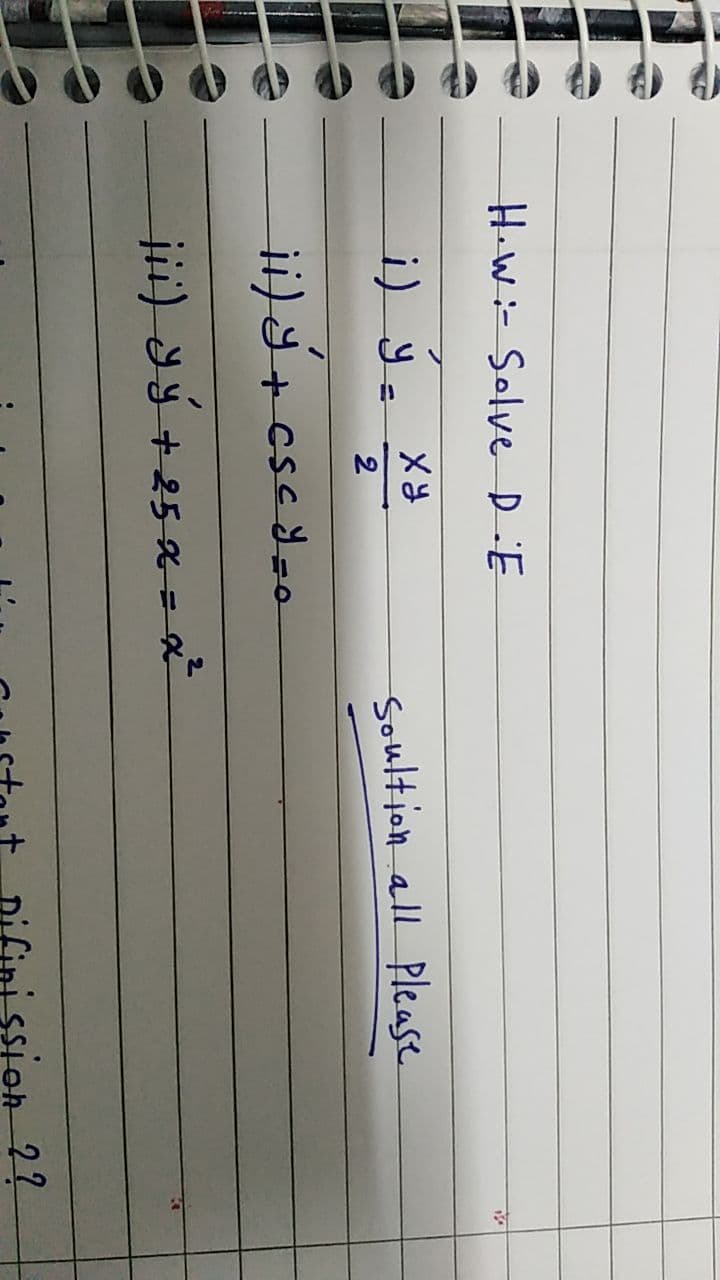 H.W:- Solve D.E
i) y' = xy/2 Soultion all Please
ii) y' + csc y = 0
iii) y y' + 25 x = x²
constant Difinission ??